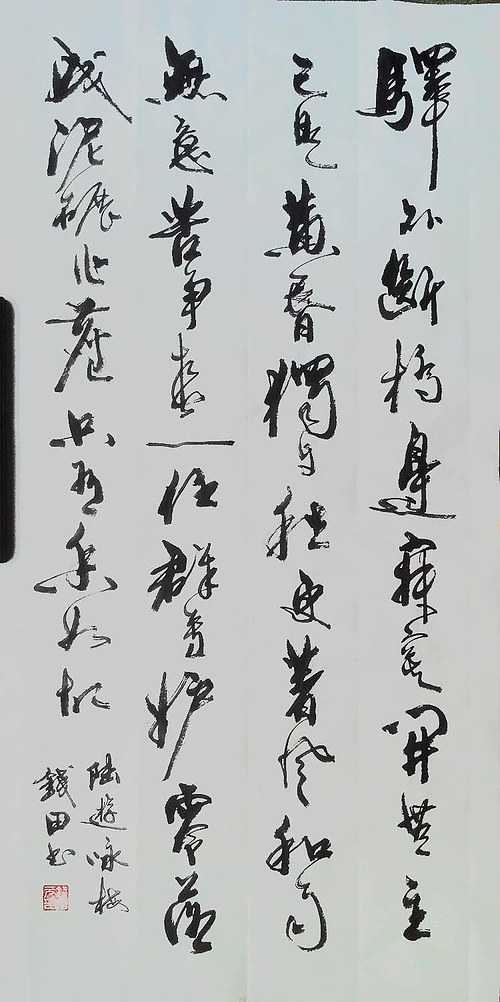 驛外斷橋邊寂寞開無主
已是黃昏獨自愁更著風和雨
無意苦争春一任群芳妒零落
成泥碾作塵只有香如故
陸遊咏梅
錢田书